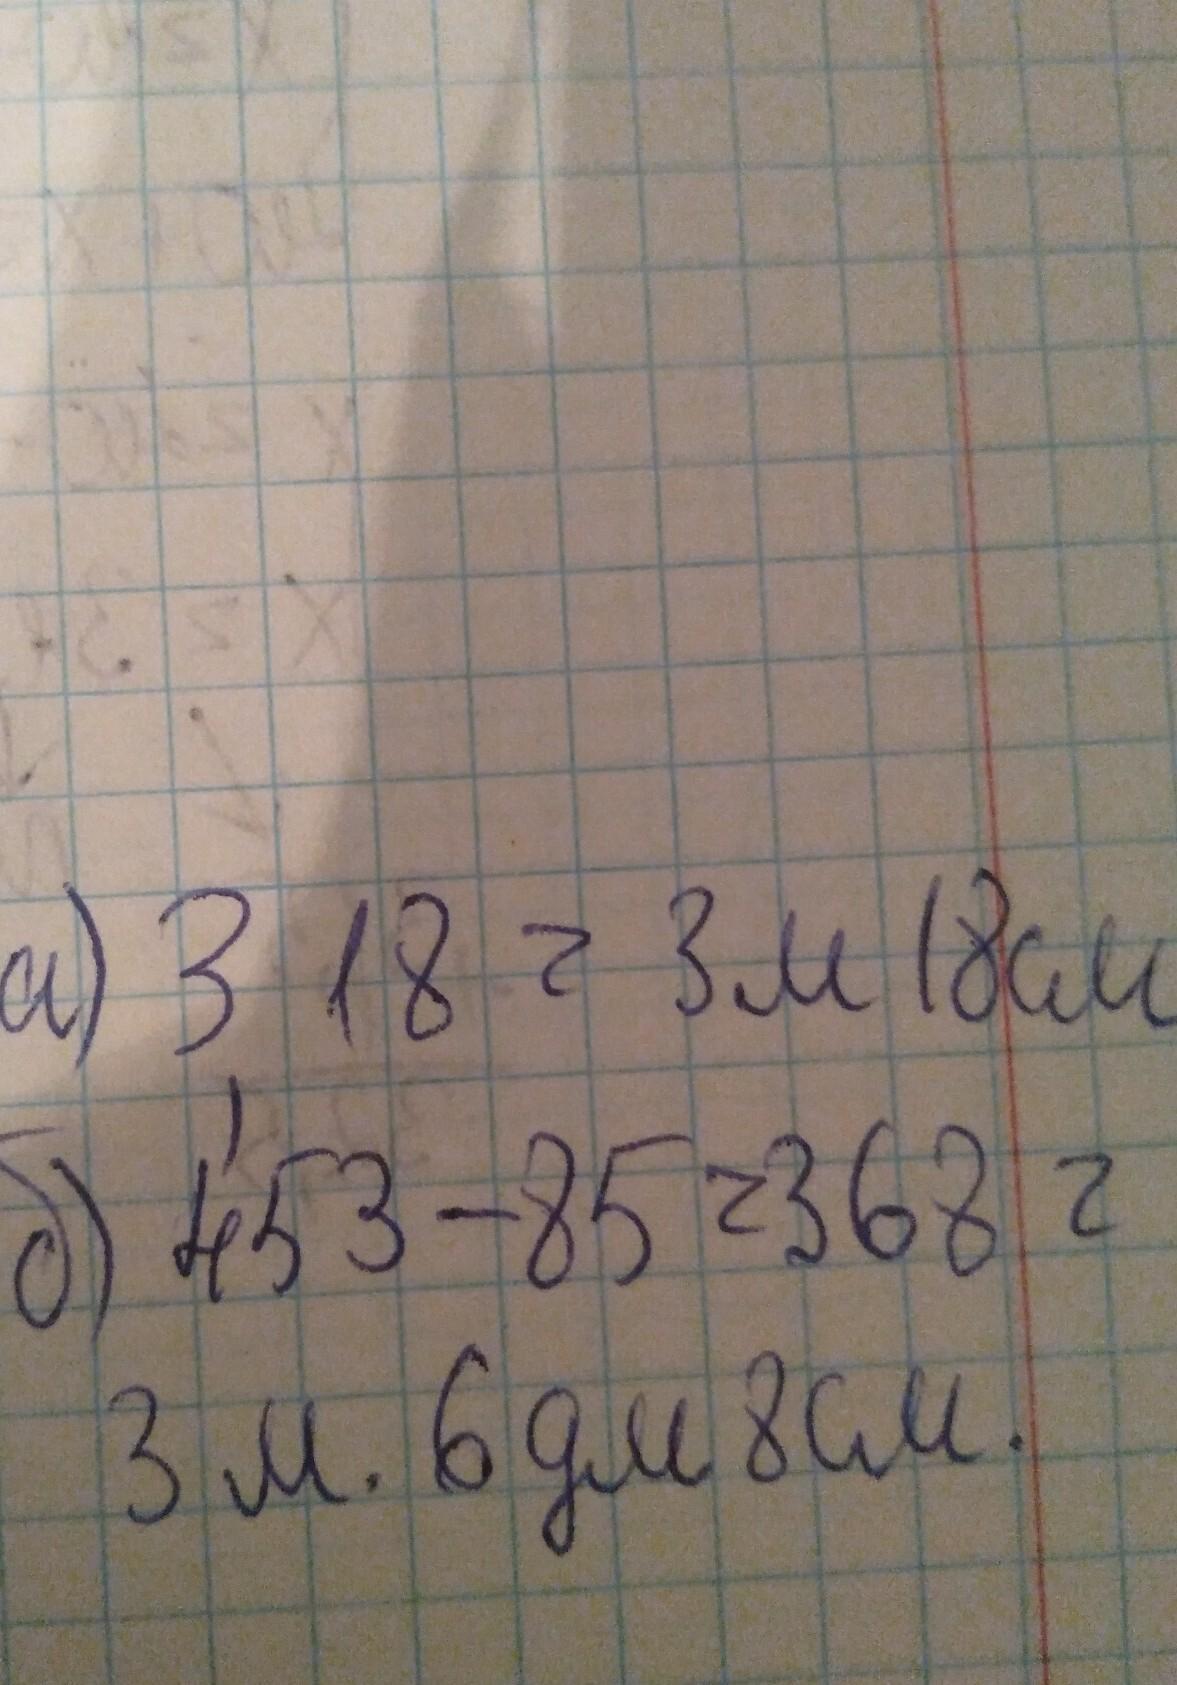 а) 3 18 = 3м 18см
б) 453 - 85 = 368 =
3 м. 6 дм 8см.